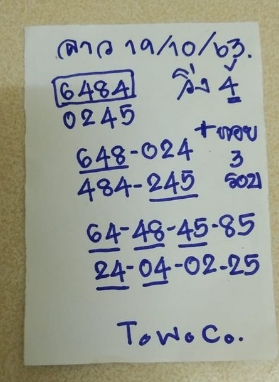 ลาว 19/10/63.
6484 วิ่ง 4
0245
648-024 + ทอย
484-245 3 รอบ
64-48-45-85
24-04-02-25
T.W.C.